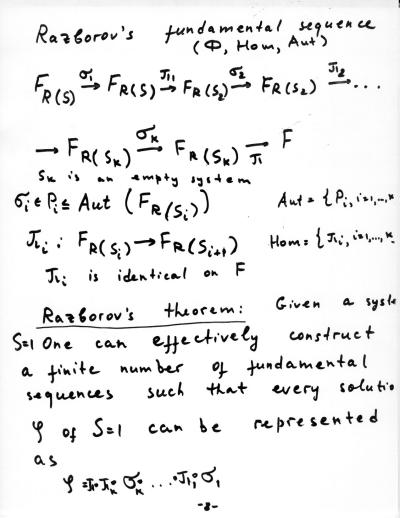 Razborov's fundamental sequence
(Φ, Hom, Aut)
F_R(S) →^σ₁ F_R(S) →^π₁ F_R(S₂) →^σ₂ F_R(S₂) →^π₂ ...
→ F_R(S_k) →^σ_k F_R(S_k) →_π F
S_k is an empty system
σ_i ∈ P_i ≤ Aut (F_R(S_i)) Aut = {P_i, i=1,...,k
π_i : F_R(S_i) → F_R(S_i+1) Hom = {π_i, i=1,...,k
π_i is identical on F
Razborov's theorem: Given a syste
S=1 One can effectively construct
a finite number of fundamental
sequences such that every solutio
φ of S=1 can be represented
as
φ = π∘π_k∘σ_k∘...∘π₁∘σ₁
-8-